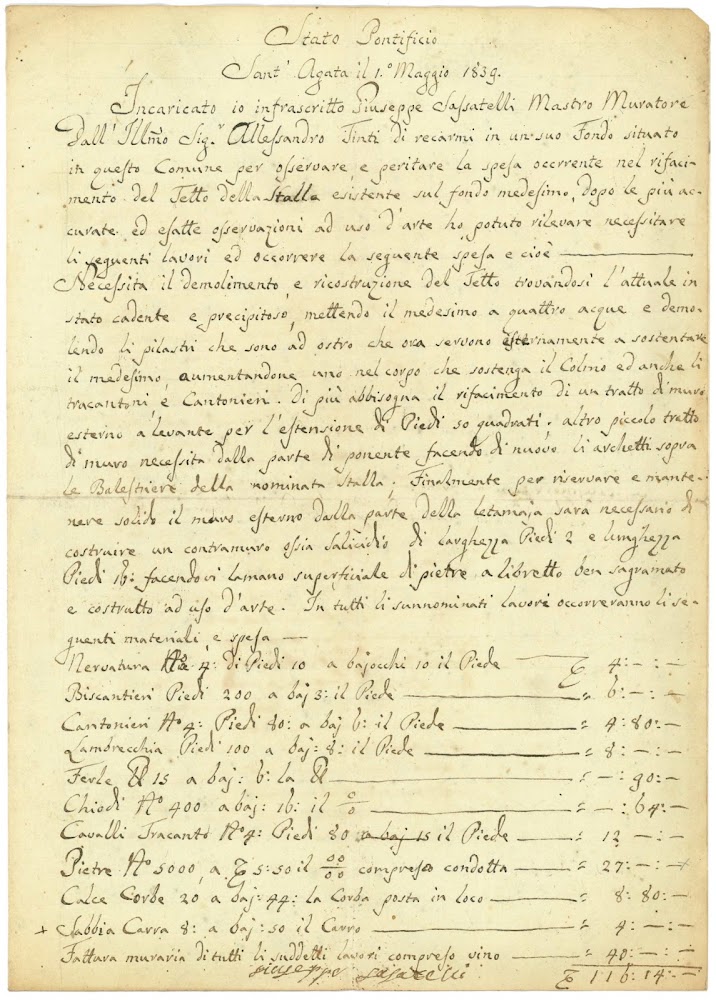 Stato Pontificio
Sant' Agata il 1.° Maggio 1839.
Incaricato io infrascritto Giuseppe Sassatelli Mastro Muratore
dall' Illmo Sigr. Allessandro Tinti di recarmi in un suo Fondo situato
in questo Comune per osservare e peritare la spesa occrrente nel rifaci-
mento del Tetto della Stalla esistente sul fondo medesimo, Dopo le più ac-
curate ed esatte osservazioni ad uso d'arte ho potuto rilevare necessitare
li seguenti lavori ed occorrere la seguente spesa e cioè —
Necessita il demolimento e ricostruzione del Tetto trovandosi l'attuale in
stato cadente e precipitoso, mettendo il medesimo a quattro acque e demo-
lendo li pilastri che sono ad ostro che ora servono esternamente a sostentare
il medesimo, aumentandone uno nel corpo che sostenga il Colmo ed anche li
tracantoni e Cantonieri. Di più abbisogna il rifacimento di un tratto di muro
esterno a levante per l'estensione di Piedi 50 quadrati; altro piccolo tratto
di muro necessita dalla parte di ponente facendo di nuovo li archetti sopra
le Balestriere della nominata Stalla; Finalmente per riservare e mante-
nere solido il muro esterno dalla parte della letamaja sarà necessario di
costruire un contramuro ossia Salicidio di larghezza Piedi 2 e lunghezza
Piedi 16: facendovi la mano superficiale di pietre a libretto ben sagramato
e costrutto ad uso d'arte. In tutti li sunnominati lavori occorreranno li se-
guenti materiali, e spesa —
Nervatura N° 4: di Piedi 10 a bajocchi 10 il Piede — 4:-:-
Biscantieri Piedi 200 a baj 3: il Piede — = 6:-:-
Cantonieri N° 4: Piedi 80: a baj 6: il Piede — = 4:80:-
Lambrecchia Piedi 100 a baj: 8: il Piede — = 8:-:-
Ferle 15 a baj: 6: la — = -:90:-
Chiodi N° 400 a baj: 16: il % — = -:64:-
Cavalli Tracanto N° 4: Piedi 80 a baj 15 il Piede — = 12-:-
Pietre N° 5000, a 5:50 il compreso condotta — = 27:-:-
Calce Corbe 20 a baj: 44: la Corba posta in loco — = 8:80:-
+ Sabbia Carra 8: a baj: 50 il Carro — = 4:-:-
Fattura muraria di tutti li suddetti lavori compreso vino — = 40:-:-
Giuseppe Sasatelli 116:14:-